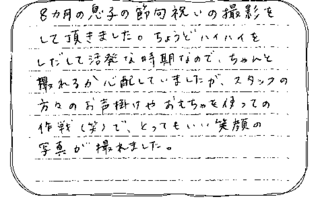 8ヵ月の息子の節句祝いの撮影を
して頂きました。ちょうどハイハイを
しだして活発な時期なので、ちゃんと
撮れるか心配していましたが、スタッフの
方々のお声掛けやおもちゃを使っての
作戦(笑)で、とってもいい笑顔の
写真が撮れました。